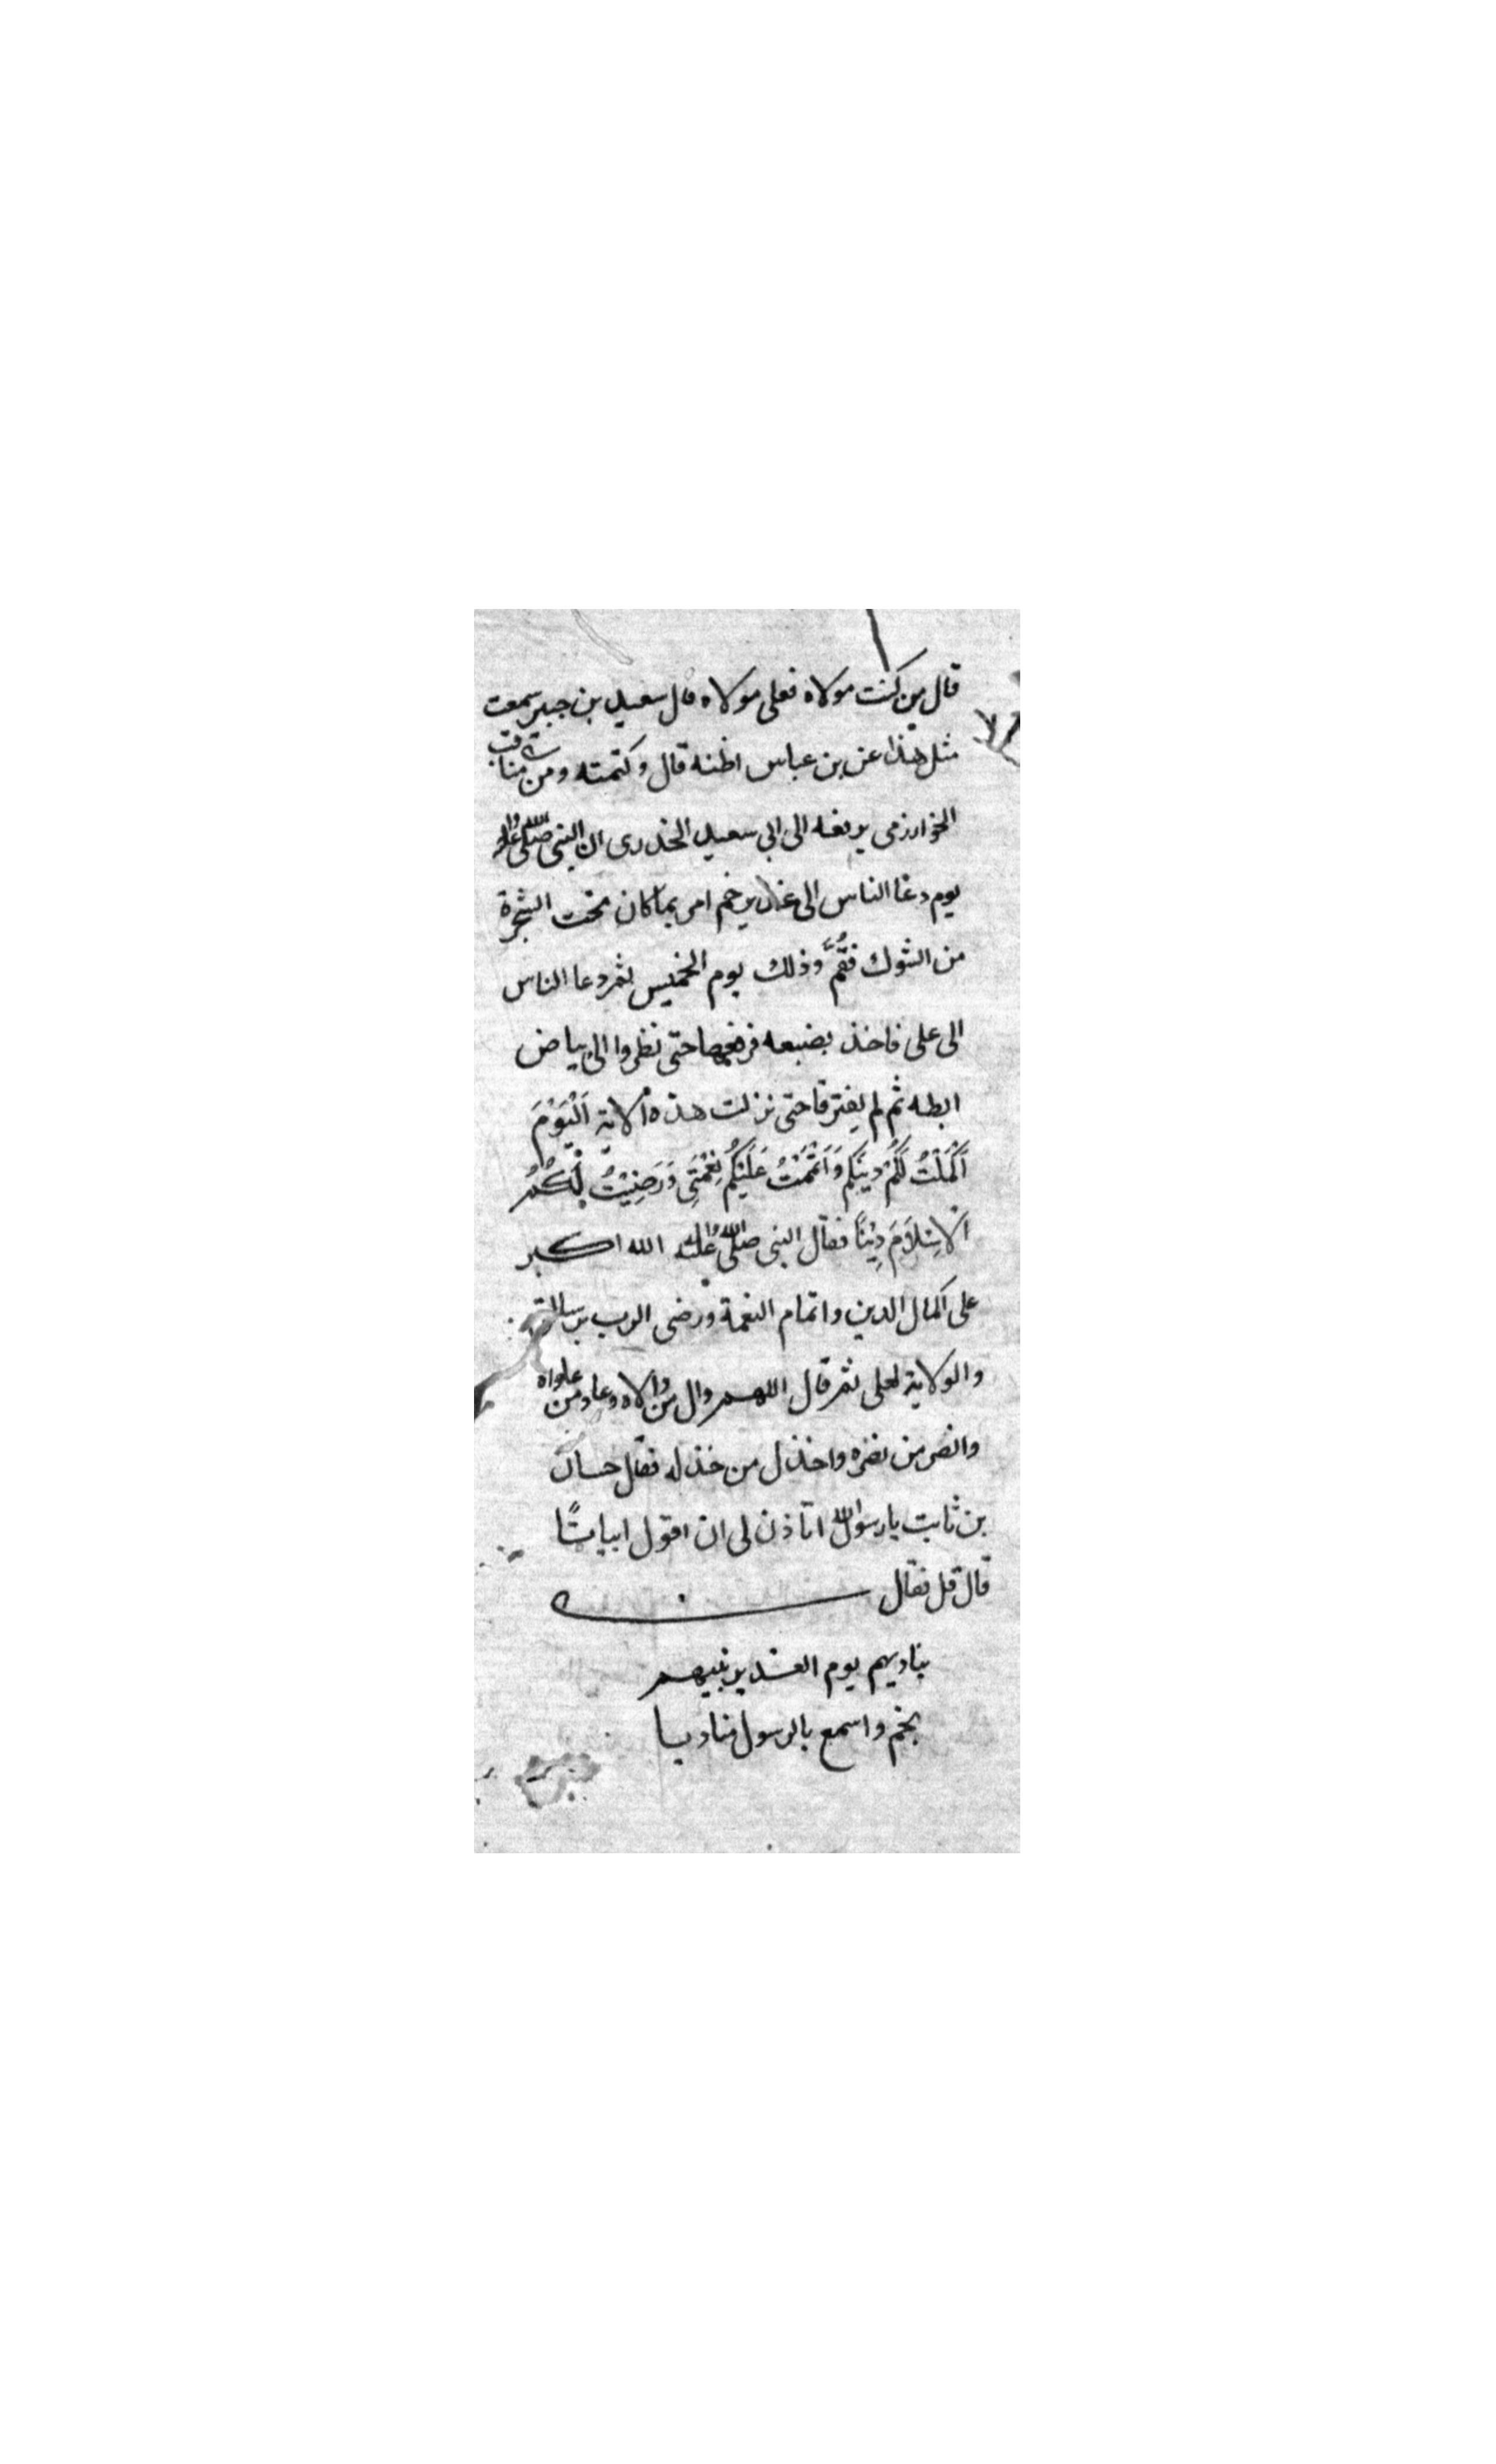 قال من كنت مولاه فعلى مولاه قال سعيد بن جبير سمعت
مثل هذا عن بن عباس اظنه قال وكتمته ومن مناقب
الخوارزمى يرفعه الى ابى سعيد الخدرى ان النبى صلى الله عليه واله
يوم دعا الناس الى غدير خم امر بما كان تحت الشجرة
من الشوك فقُمَّ وذلك يوم الخميس ثم دعا الناس
الى على فاخذ بضبعه فرفعها حتى نظروا الى بياض
ابطه ثم لم يفترقا حتى نزلت هذه الاية اَلْيَوْمَ
اَكْمَلْتُ لَكُمْ دِينَكُمْ وَاَتْمَمْتُ عَلَيْكُمْ نِعْمَتِى وَرَضِيْتُ لَكُمُ
الْاِسْلَامَ دِيْنًا فقال النبى صلى الله عليه واله الله اكبر
على اكمال الدين واتمام النعمة ورضى الرب برسالتى
والولاية لعلى ثم قال اللهم وال من والاه وعاد من عاداه
وانصر من نصره واخذل من خذله فقال حسان
بن ثابت يا رسول الله اتاذن لى ان اقول ابياتًا
قال قل فقال
يناديهم يوم الغدير نبيهم
بخم واسمع بالرسول مناديا